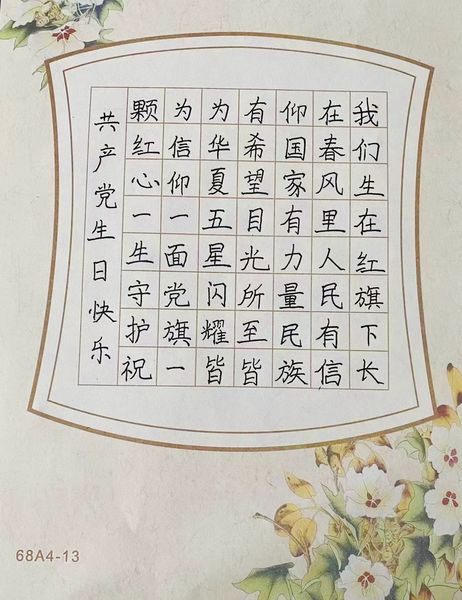 我们生在红旗下长
在春风里人民有信
仰国家有力量民族
有希望目光所至皆
为华夏五星闪耀皆
为信仰一面党旗一
颗红心一生守护祝
共产党生日快乐
68A4-13